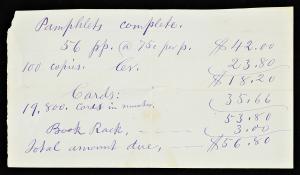 Pamphlets complete.
56 pp. @ 75c per p. $42.00
100 copies. Cr. 23.80
$18.20
Cards:
19,800. Cards in number. 35.66
53.80
Book Rack, 3.00
Total amount due, $56.80